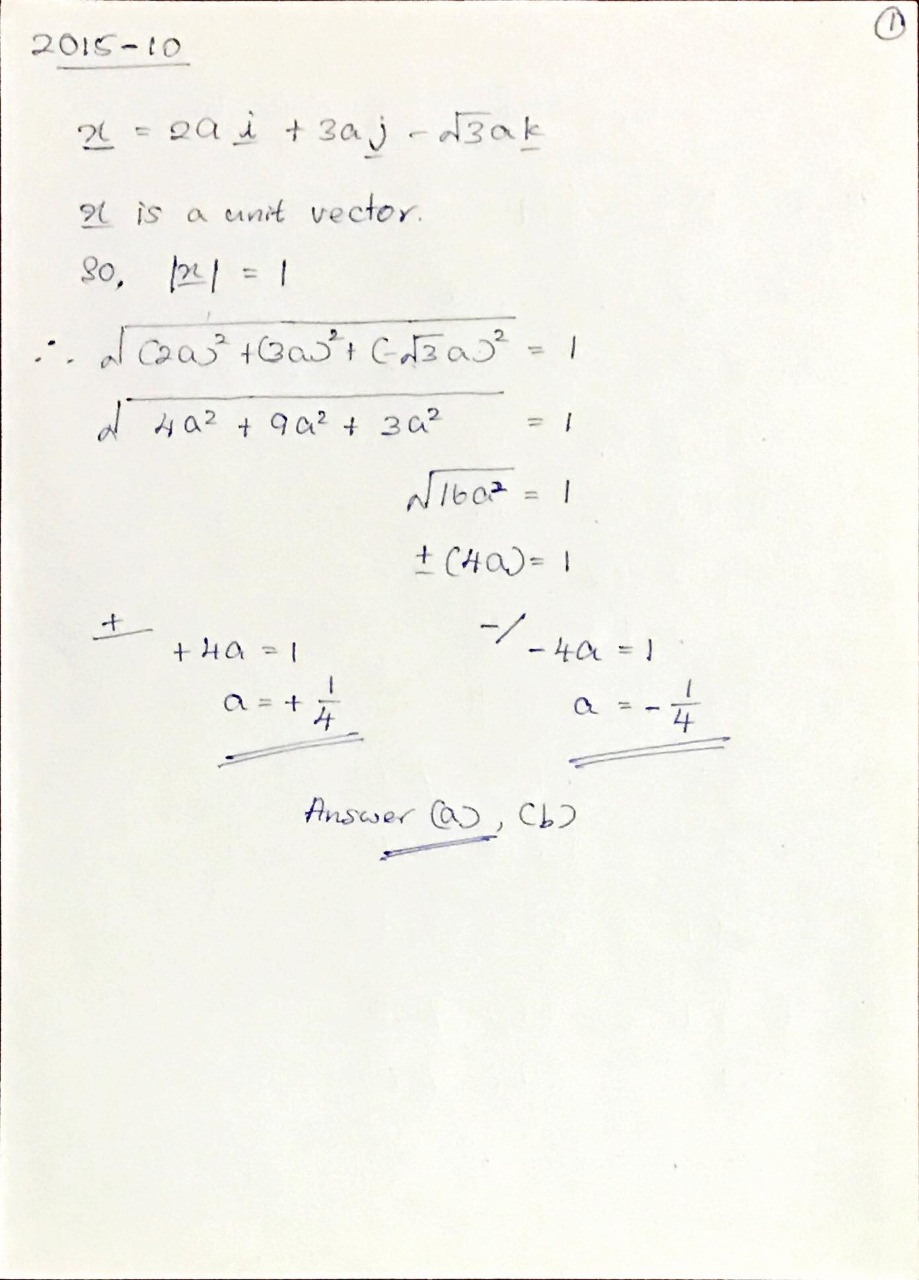 ①
2015-10
x = 2a i + 3a j - √3a k
x is a unit vector.
So, |x| = 1
∴ √((2a)² + (3a)² + (-√3 a)²) = 1
√(4a² + 9a² + 3a²) = 1
√(16a²) = 1
± (4a) = 1
+ -/
+4a = 1 -4a = 1
a = + 1/4 a = - 1/4
Answer (a), (b)